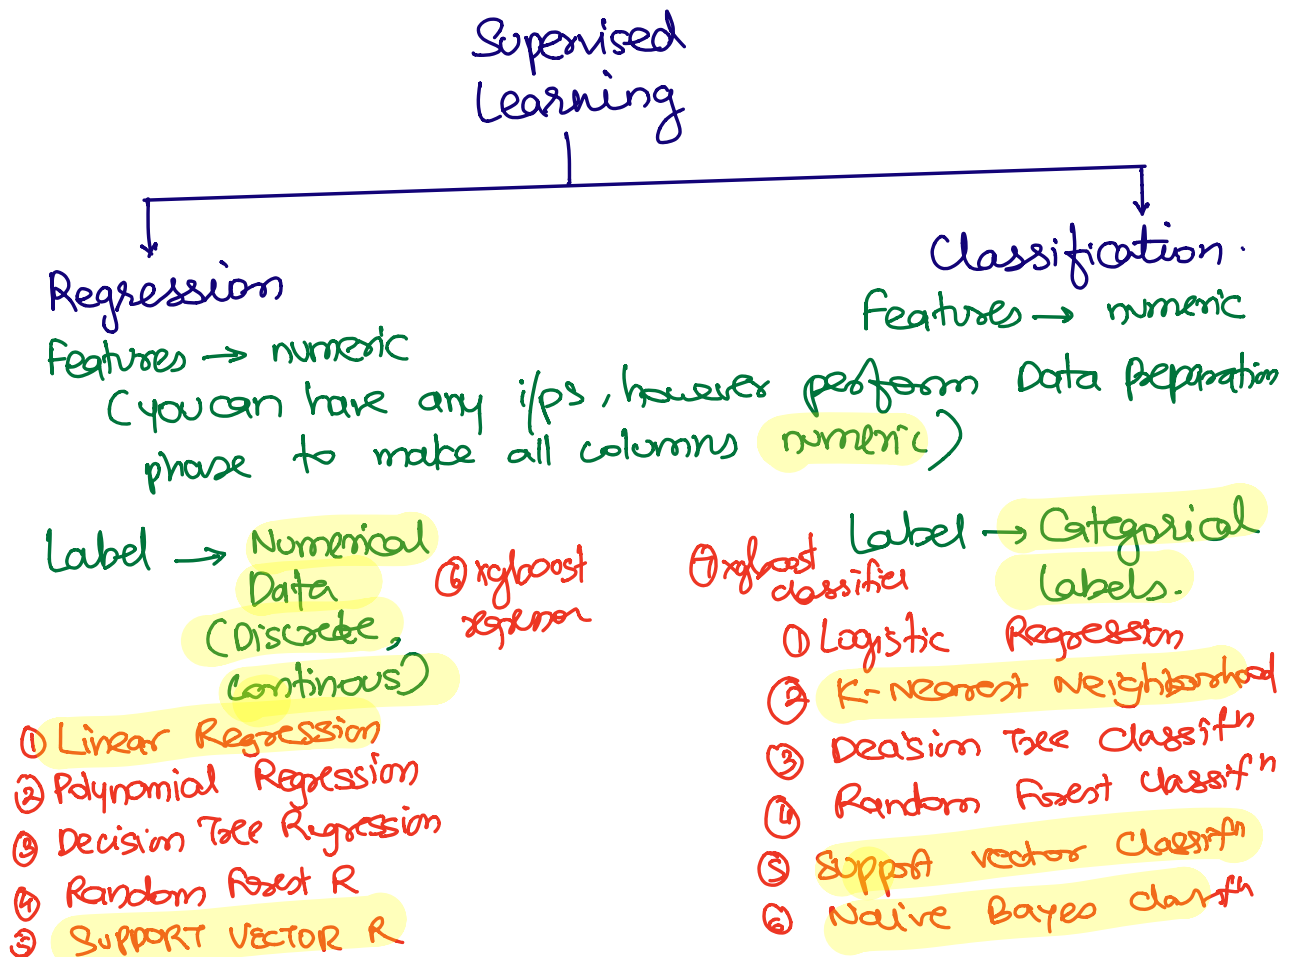 Supervised
Learning
Regression
Features → numeric
Classification.
Features → numeric
(you can have any i/ps, however perform Data Preparation
phase to make all columns numeric)
Label → Numerical
Data
(Discrete,
continous)
⑥ xgboost
regressor
① Linear Regression
② Polynomial Regression
③ Decision Tree Regression
④ Random Forest R
⑤ SUPPORT VECTOR R
Label → Categorical
Labels.
⑦ xgboost
classifier
① Logistic Regression
② K-Nearest Neighborhood
③ Decision Tree Classifn
④ Random Forest Classifn
⑤ Support vector Classifn
⑥ Naive Bayes Classfn